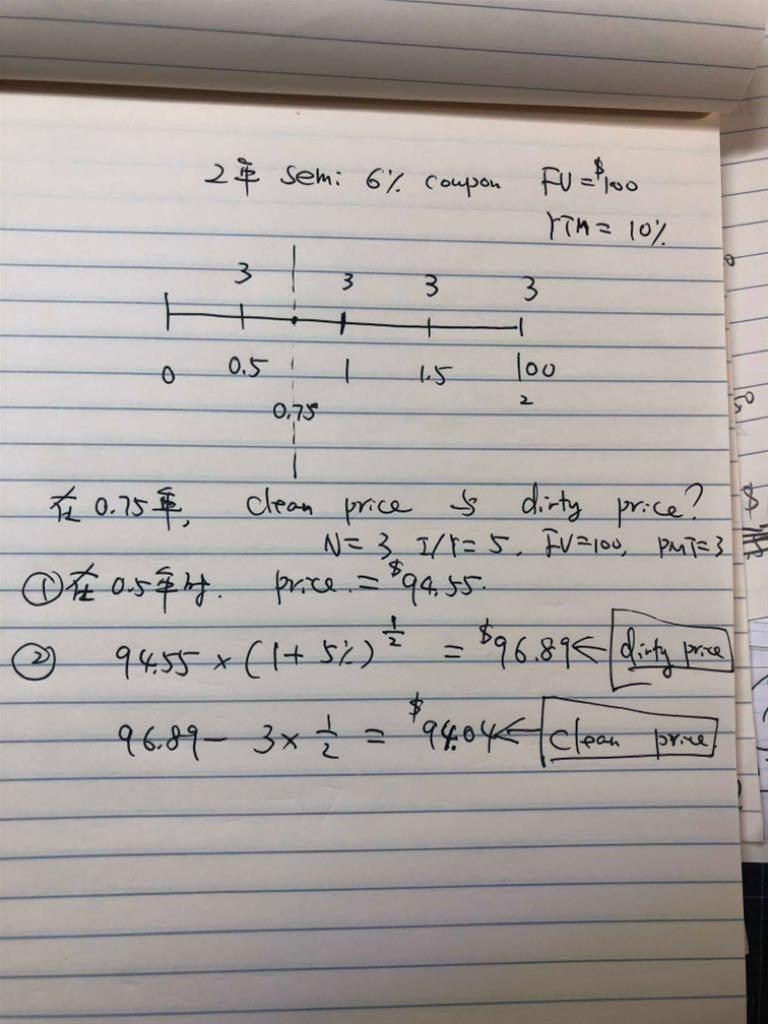 2年 semi 6% coupon FV=$100
YTM = 10%
3 3 3 3
0 0.5 1 1.5 100
2
0.75
在 0.75年, clean price 与 dirty price?
N=3, I/Y=5, FV=100, PMT=3
①在 0.5年时. price = $94.55.
② 94.55 × (1+5%)^{1/2} = $96.89 ← dirty price
96.89 - 3 × 1/2 = $94.04 ← clean price